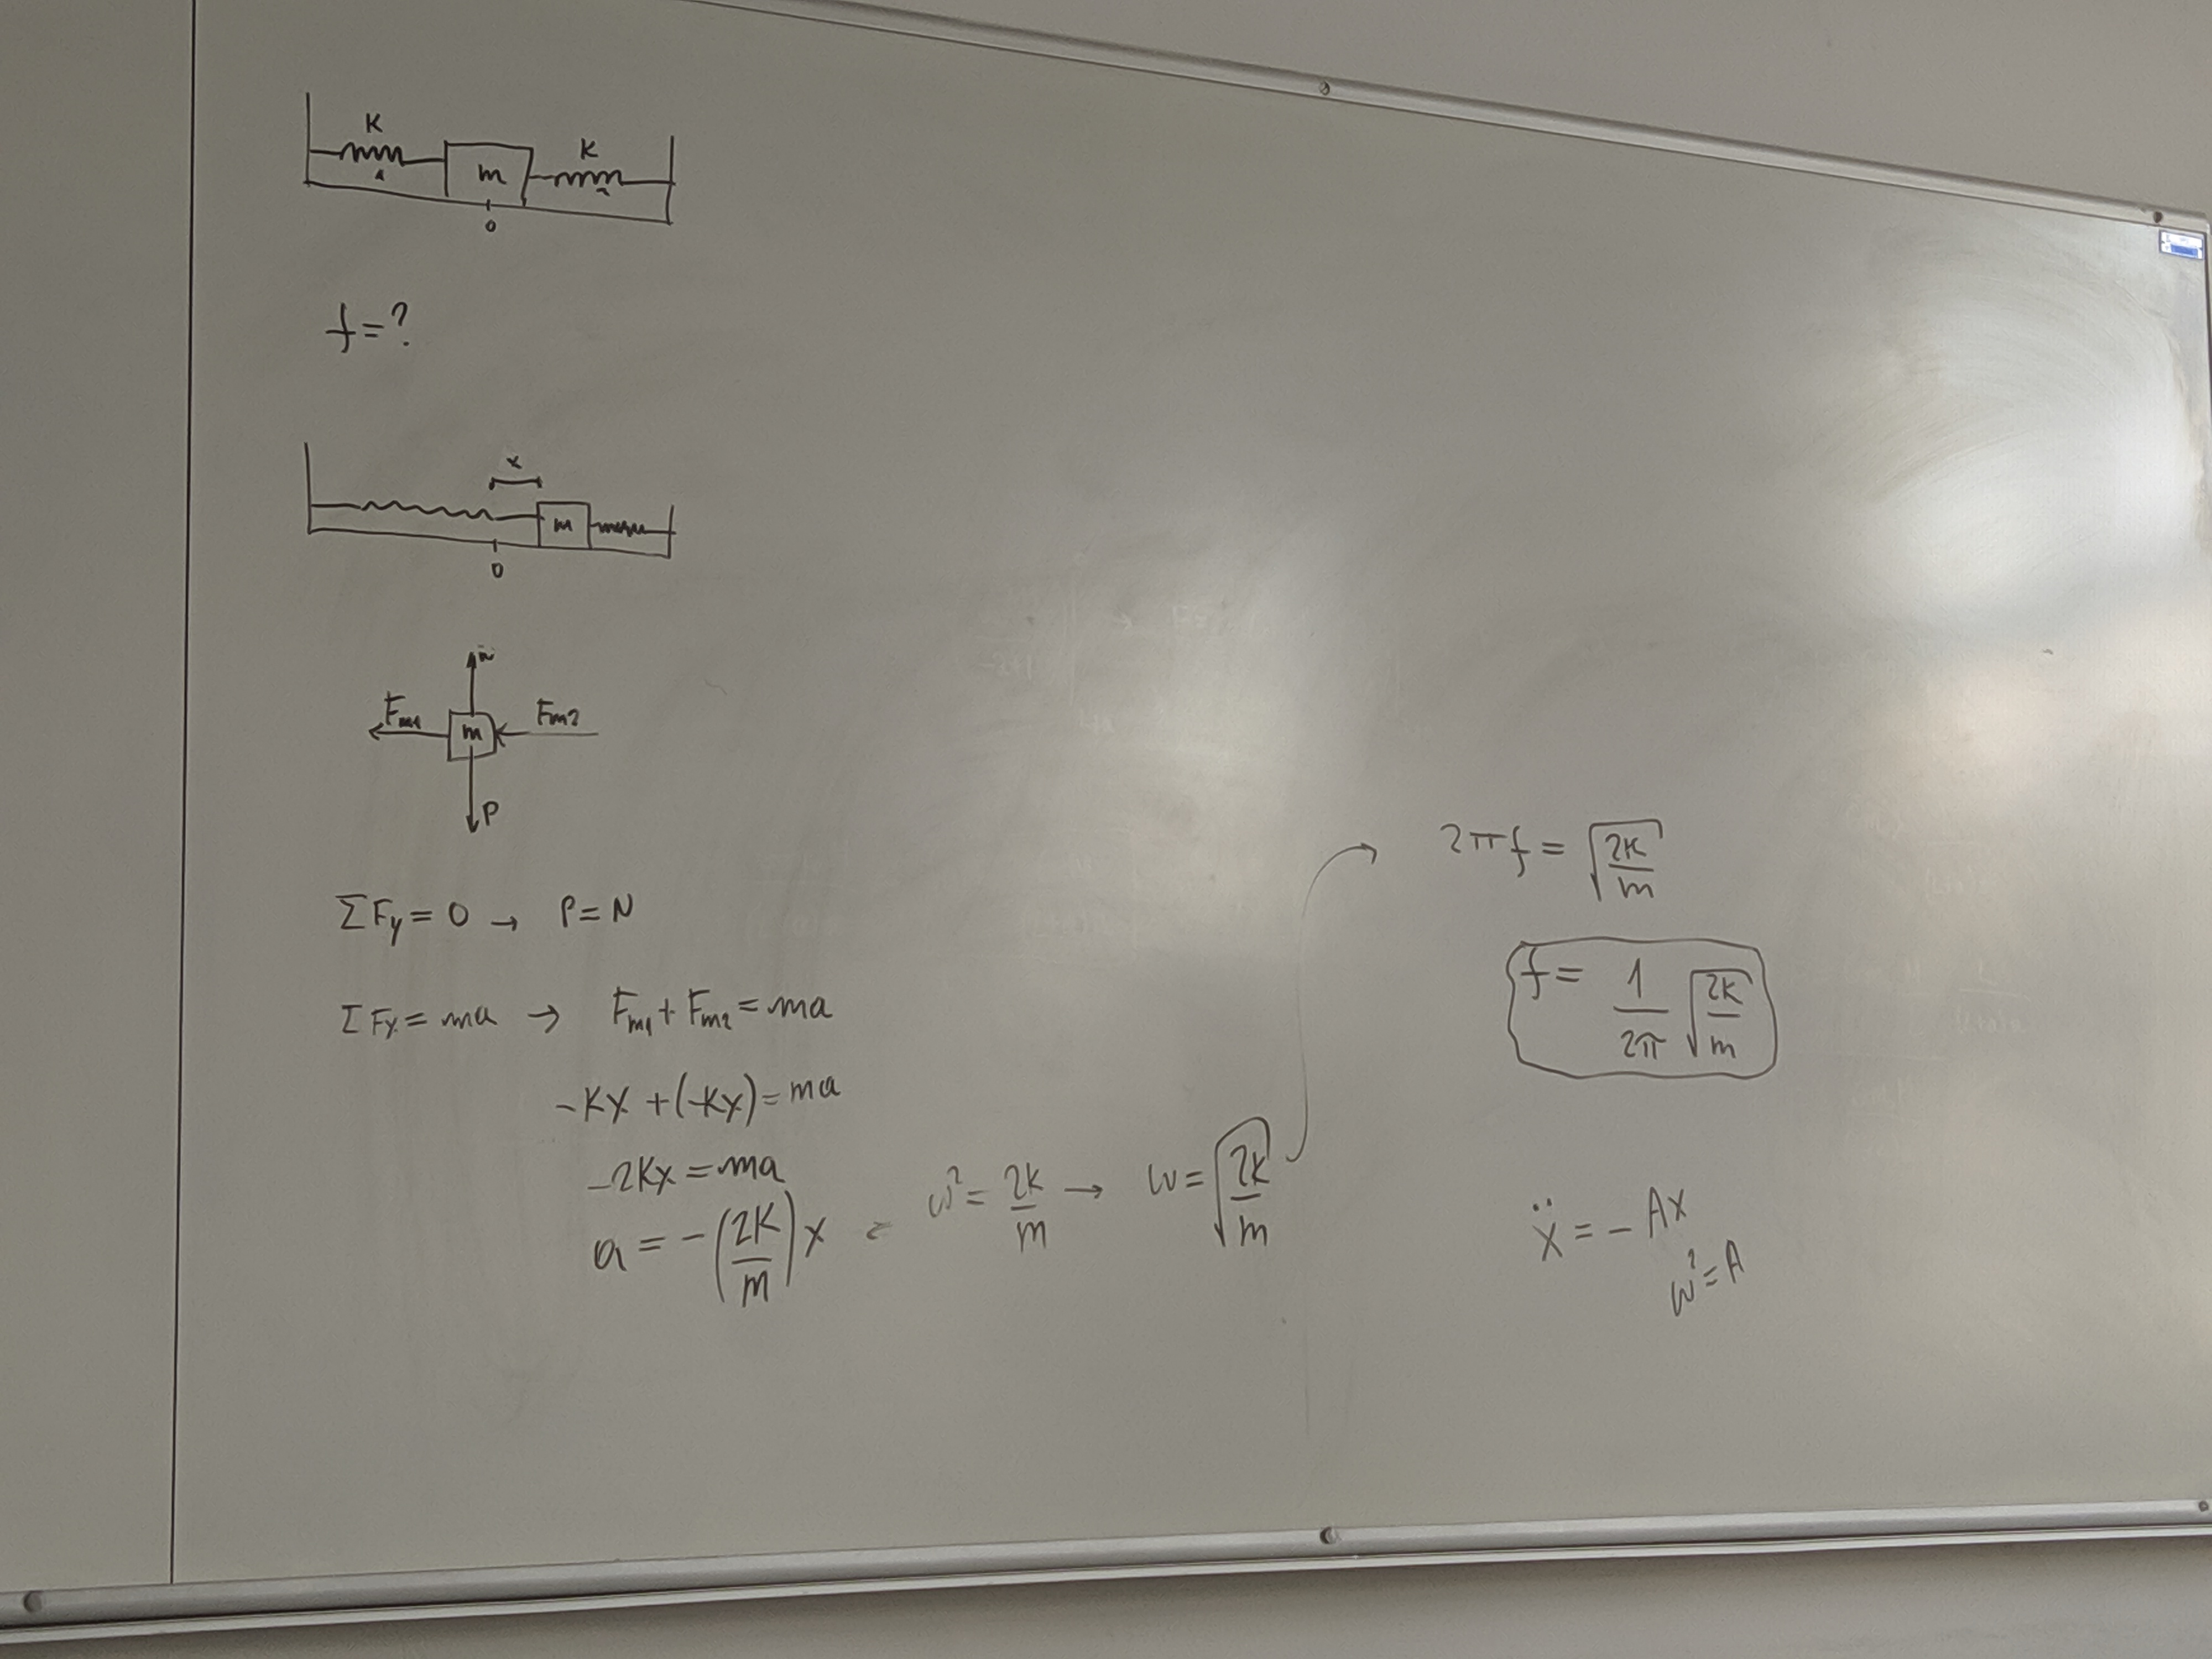 K
K
m
0
f=?
x
m
0
N
Fm1
m
Fm2
P
ΣFy = 0 → P = N
ΣFx = ma → Fm1 + Fm2 = ma
-Kx + (-Kx) = ma
-2Kx = ma
a = -(2K/m)x = ω² = 2k/m → ω = √(2k/m)
2πf = √(2K/m)
f = 1/2π √(2K/m)
ẍ = - Ax
ω² = A